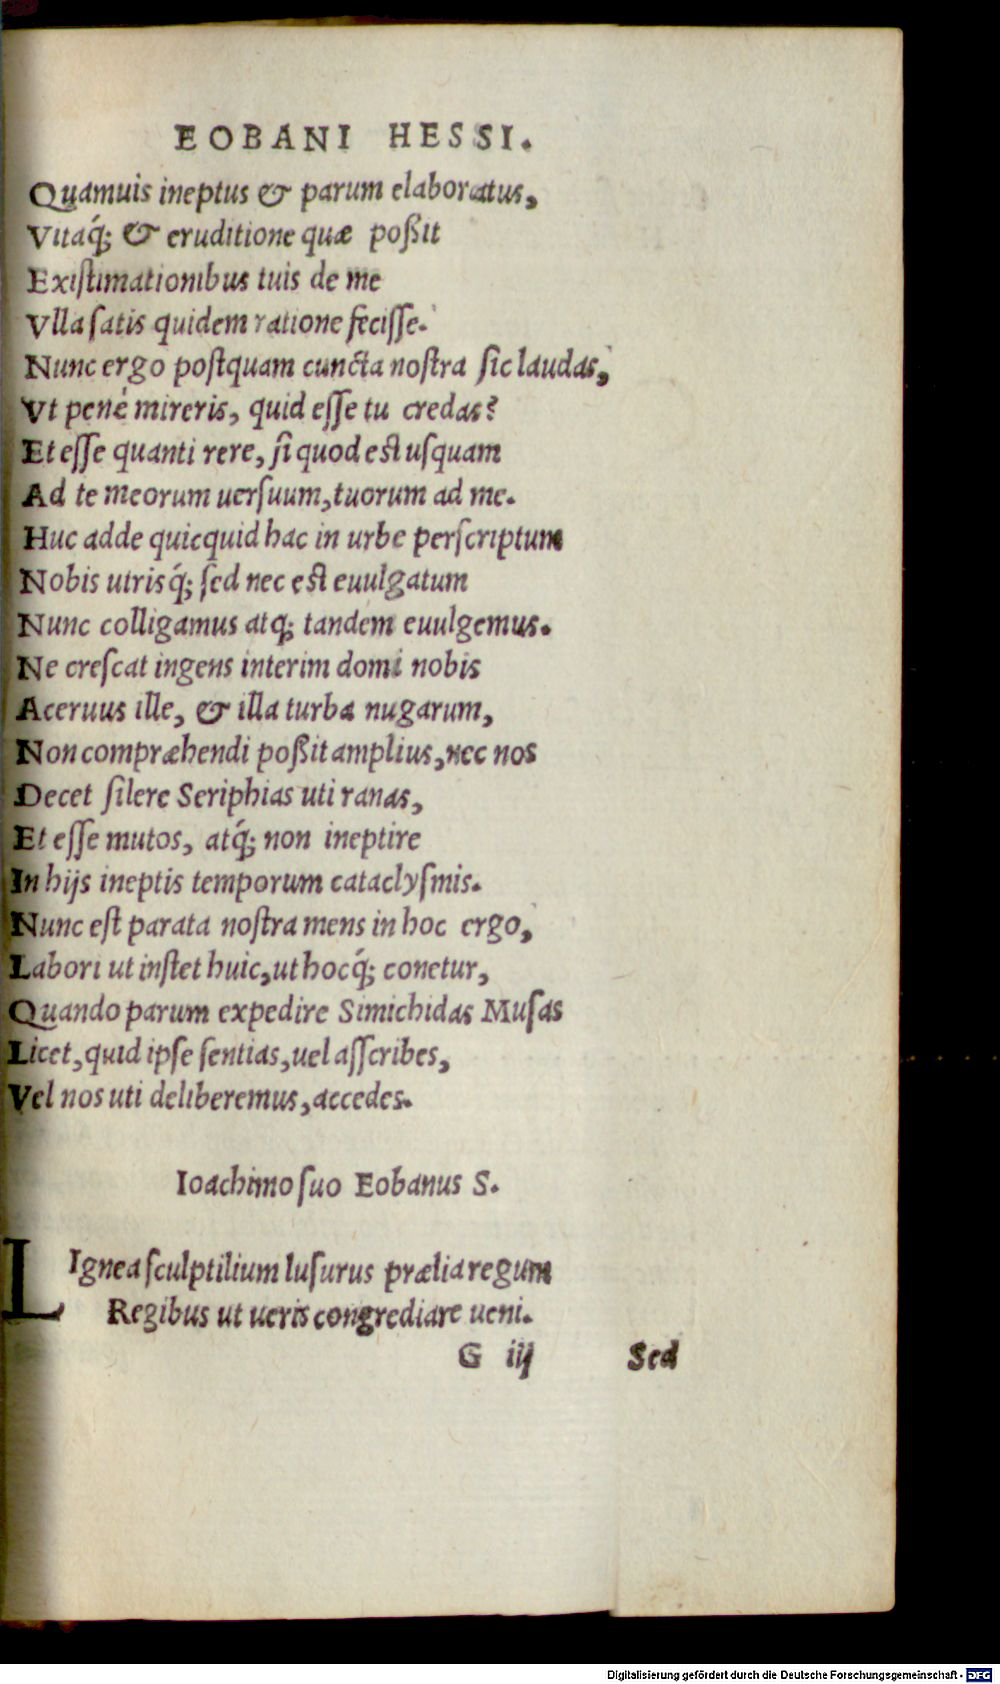 EOBANI HESSI.
Quamuis ineptus & parum elaboratus,
Vitaq́; & eruditione quæ poßit
Exiſtimationibus tuis de me
Vlla ſatis quidem ratione feciſſe.
Nunc ergo poſtquam cuncta noſtra ſic laudas,
Vt penè mireris, quid eſſe tu credas?
Et eſſe quanti rere, ſi quod est uſquam
Ad te meorum uerſuum, tuorum ad me.
Huc adde quicquid hac in urbe perſcriptum
Nobis utrisq́; ſed nec est euulgatum
Nunc colligamus atq; tandem euulgemus.
Ne creſcat ingens interim domi nobis
Aceruus ille, & illa turba nugarum,
Non compræhendi poßit amplius, nec nos
Decet ſilere Seriphias uti ranas,
Et eſſe mutos, atq́; non ineptire
In hijs ineptis temporum cataclyſmis.
Nunc eſt parata noſtra mens in hoc ergo,
Labori ut inſtet huic, ut hocq́; conetur,
Quando parum expedire Simichidas Muſas
Licet, quid ipſe ſentias, uel aſſcribes,
Vel nos uti deliberemus, accedes.
Ioachimo ſuo Eobanus S.
LIgnea ſculptilium luſurus prælia regum
Regibus ut ueris congrediare ueni.
G iij Sed
Digitalisierung gefördert durch die Deutsche Forschungsgemeinschaft - DFG